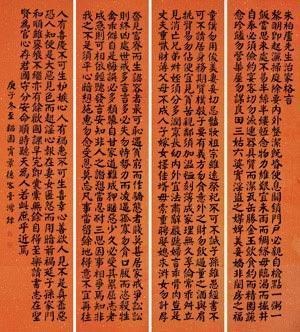 朱柏廬先生治家格言
黎明即起灑掃庭除要內外整潔既昏便息關鎖門戶必親自檢點一粥一
飯當思來處不易半絲半縷恆念物力維艱宜未雨而綢繆毋臨渴而掘井
自奉必須儉約宴客切勿留連器具質而潔瓦缶勝金玉飲食約而精園蔬
愈珍饈勿營華屋勿謀良田三姑六婆實淫盜之媒婢美妾嬌非閨房之福
童僕勿用俊美妻妾切忌豔妝祖宗雖遠祭祀不可不誠子孫雖愚經書不
可不讀居身務期質樸教子要有義方勿貪意外之財勿飲過量之酒與肩
挑貿易勿佔便宜見貧苦親鄰須加溫恤刻薄成家理無久享倫常乖舛立
見消亡兄弟叔姪須分多潤寡長幼內外宜法肅辭嚴聽婦言乖骨肉豈是
丈夫重資財薄父母不成人子嫁女擇佳婿毋索重聘娶媳求淑女勿計厚
奩見富貴而生諂容者最可恥遇貧窮而作驕態者賤莫甚居家戒爭訟訟
則終凶處世戒多言言多必失勿恃勢力而凌逼孤寡毋貪口腹而恣殺牲
禽乖僻自是悔誤必多頹惰自甘家道難成狎暱惡少久必受其累屈志老
成急則可相依輕聽發言安知非人之譖訴當忍耐三思因事相爭焉知非
我之不是須平心暗想施惠勿念受恩莫忘凡事當留餘地得意不宜再往
人有喜慶不可生妒嫉心人有禍患不可生喜幸心善欲人見不是真善惡
恐人知便是大惡見色而起淫心報在妻女匿怨而用暗箭禍延子孫家門
和順雖饔飧不繼亦有餘歡國課早完即囊橐無餘自得至樂讀書志在聖
賢為官心存君國守分安命順時聽天為人若此庶乎近焉
庚子冬至